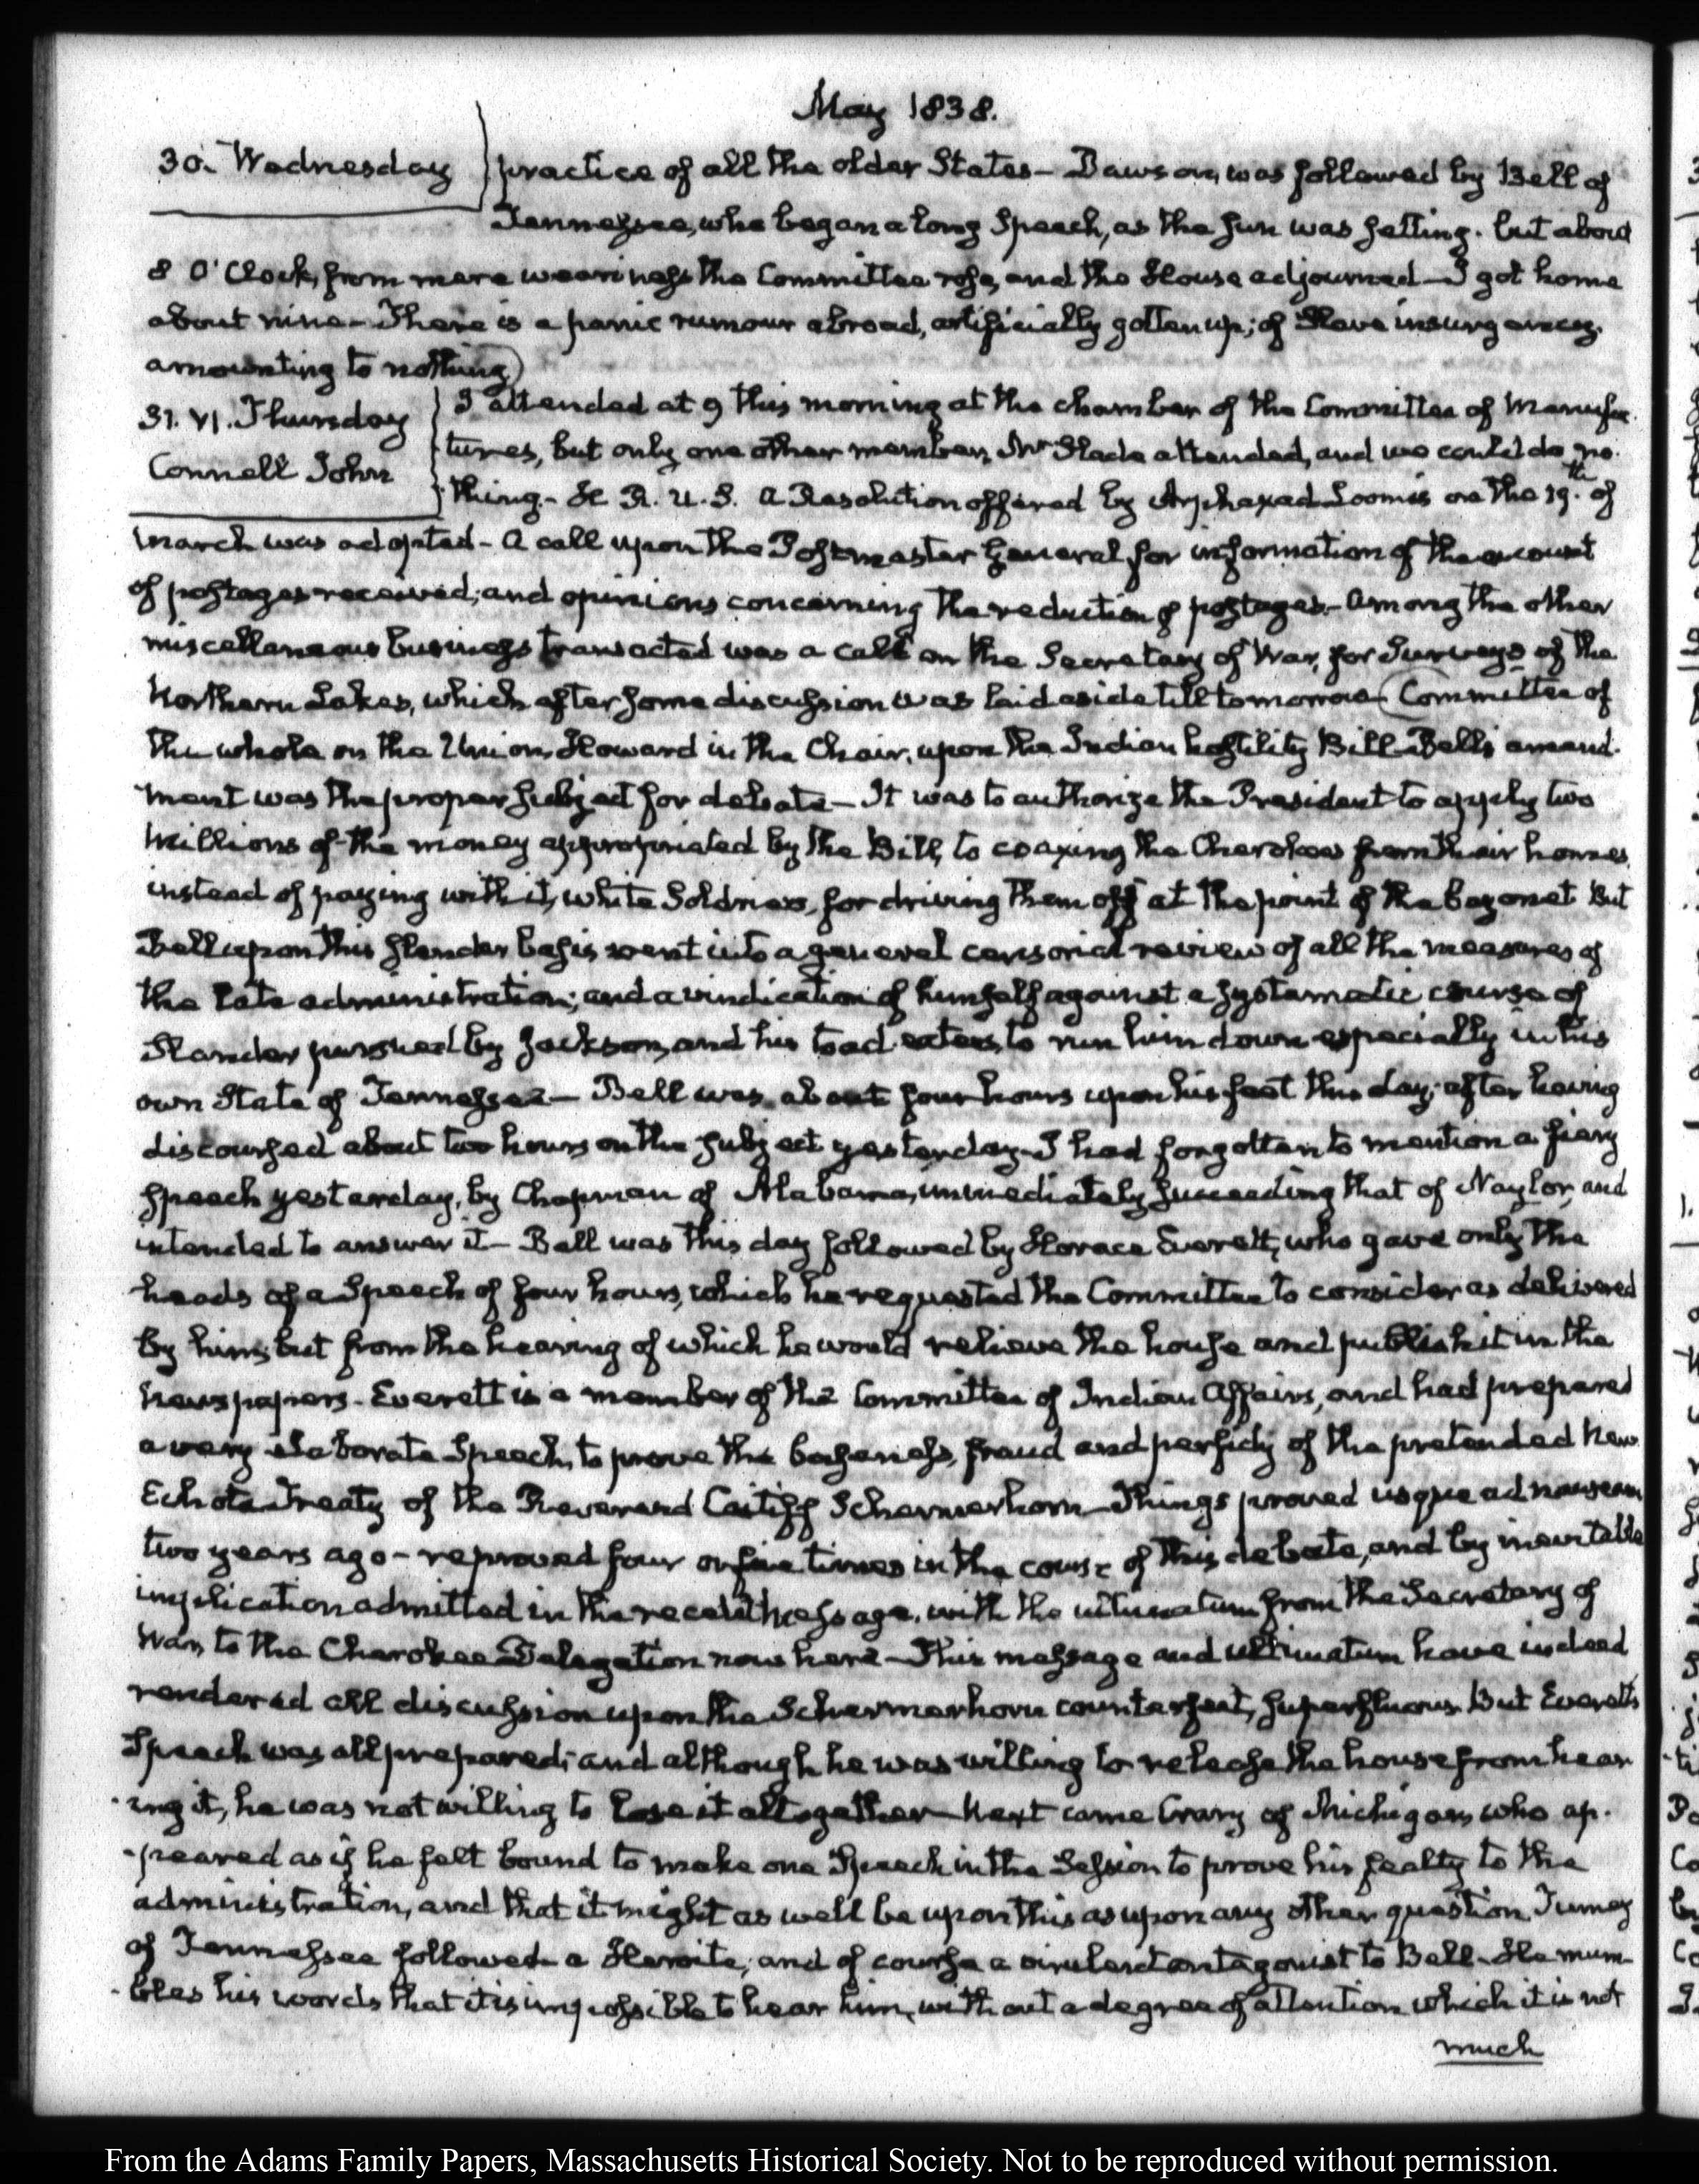 May 1838.
30. Wednesday
practice of all the older States — Dawson, was followed by Bell of
Tennessee, who began a long Speech, as the Sun was setting. but about
8 O'Clock, from mere weariness the Committee rose, and the House adjourned — I got home
about nine — There is a panic rumour abroad, artificially gotten up; of Slave insurgency.
amounting to nothing)
31. VI. Thursday
Connell John
I attended at 9 this morning at the chamber of the Committee of Manufac-
tures, but only one other member, Mr Slade attended, and we could do no-
thing. — H. R. U. S. A Resolution offered by Arphaxad Loomis on the 19.th of
March was adopted — A call upon the Postmaster General for information of the amount
of postages received; and opinions concerning the reduction of postages. — Among the other
miscellaneous business transacted was a call on the Secretary of War, for Surveys of the
Northern Lakes, which after some discussion was laid aside till tomorrow (Committee of
the whole on the Union, Howard in the Chair, upon the Indian hostility Bill — Bell's amend-
ment was the proper subject for debate — It was to authorize the President to apply two
Millions of the money appropriated by the Bill, to coaxing the Cherokees from their homes,
instead of paying with it, white Soldiers, for driving them off at the point of the bayonet But
Bell upon this slender basis went into a general censorial review of all the measures of
the late administration; and a vindication of himself against a systematic course of
Slander pursued by Jackson, and his toad eaters, to run him down especially in his
own State of Tennessee — Bell was about four hours upon his feet this day; after having
discoursed about two hours on the subject yesterday — I had forgotten to mention a fiery
Speech yesterday, by Chapman of Alabama, immediately succeeding that of Naylor, and
intended to answer it — Bell was this day followed by Horace Everett, who gave only the
heads of a Speech of four hours, which he requested the Committee to consider as delivered
by him; but from the hearing of which he would relieve the house and publish it in the
newspapers. Everett is a member of the Committee of Indian Affairs, and had prepared
a very elaborate Speech, to prove the baseness, fraud and perfidy of the pretended New
Echota Treaty of the Reverend Caitiff Schermerhorn — Things proved usque ad nauseam
two years ago — reproved four or five times in the course of this debate, and by inevitable
implication admitted in the recent message, with the ultimatum from the Secretary of
War, to the Cherokee Delegation now here — This message and ultimatum have indeed
rendered all discussion upon the Schermerhorn counterfeit, superfluous. But Everett's
Speech was all prepared; and although he was willing to release the house from hear-
ing it, he was not willing to lose it altogether — Next came Crary of Michigan, who ap-
-peared as if he felt bound to make one Speech in the Session to prove his fealty to the
administration, and that it might as well be upon this as upon any other question. Turney
of Tennessee followed a Heroite; and of course a virulent antagonist to Bell — He mum-
-bles his words that it is impossible to hear him, without a degree of attention which it is not
much
From the Adams Family Papers, Massachusetts Historical Society. Not to be reproduced without permission.